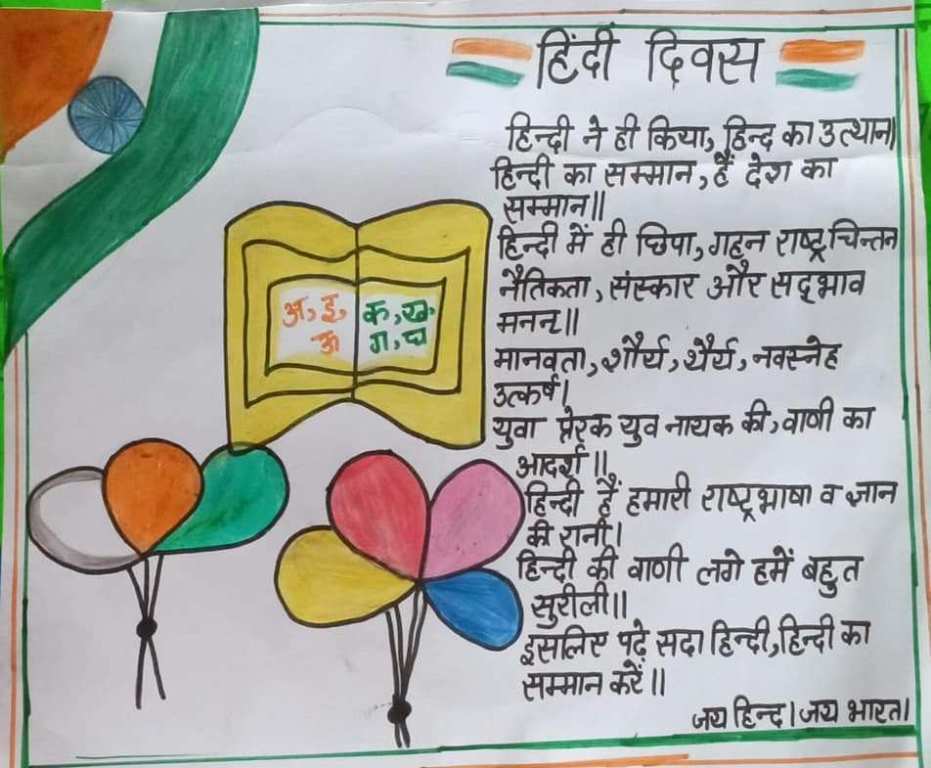 हिंदी दिवस
हिन्दी ने ही किया, हिन्द का उत्थान।
हिन्दी का सम्मान, हैं देश का
सम्मान॥
हिन्दी में ही छिपा, गहन राष्ट्र चिन्तन
नैतिकता, संस्कार और सद्भाव
मनन॥
मानवता, शौर्य, धैर्य, नवस्नेह
उत्कर्ष।
युवा प्रेरक युव नायक की, वाणी का
आदर्श॥
हिन्दी हैं हमारी राष्ट्रभाषा व ज्ञान
की रानी।
हिन्दी की वाणी लगे हमें बहुत
सुरीली॥
इसलिए पढ़े सदा हिन्दी, हिन्दी का
सम्मान करें॥
जय हिन्द। जय भारत।
अ, इ, क, ख,
ऊ ग, घ